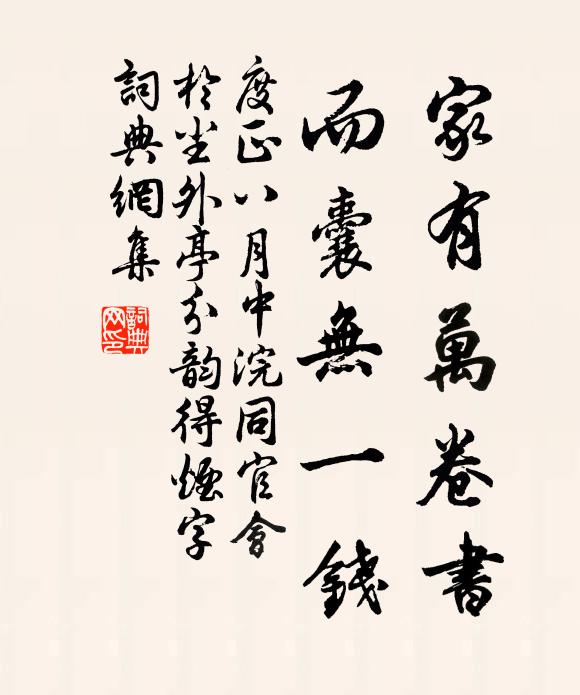 家有萬卷書
而囊無一錢
度正八月中浣同官會
於尘外亭分韵得煙字
詞典網集
詞典网印